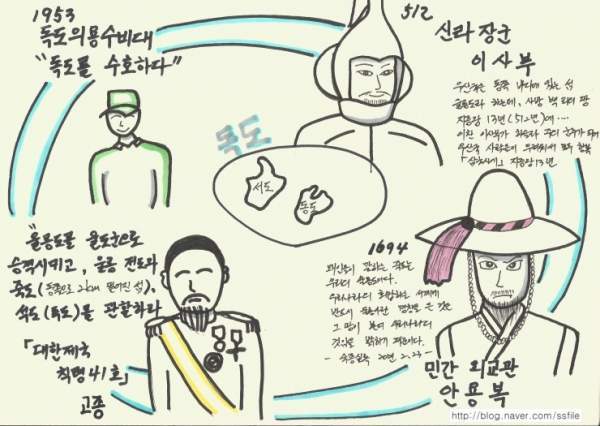 1953
독도의용수비대
"독도를 수호하다"
512
신라 장군
이사부
우산국은 동쪽 바다에 있는 섬
울릉도라 하는데, 사방 백 리의 땅
지증왕 13년(512년)에....
이찬 이사부가
「삼국사기」 지증왕 13년
독도
서도
동도
"울릉도를 울도군으로
승격시키고, 울릉 전도와
죽도(동쪽으로 2km 떨어진 섬),
석도(독도)를 관할하라
「대한제국
칙령 41호」
고종
1694
우리의 울릉도이다.
- 숙종실록 20년 2.23 -
민간 외교관
안용복
http://blog.naver.com/ssfile